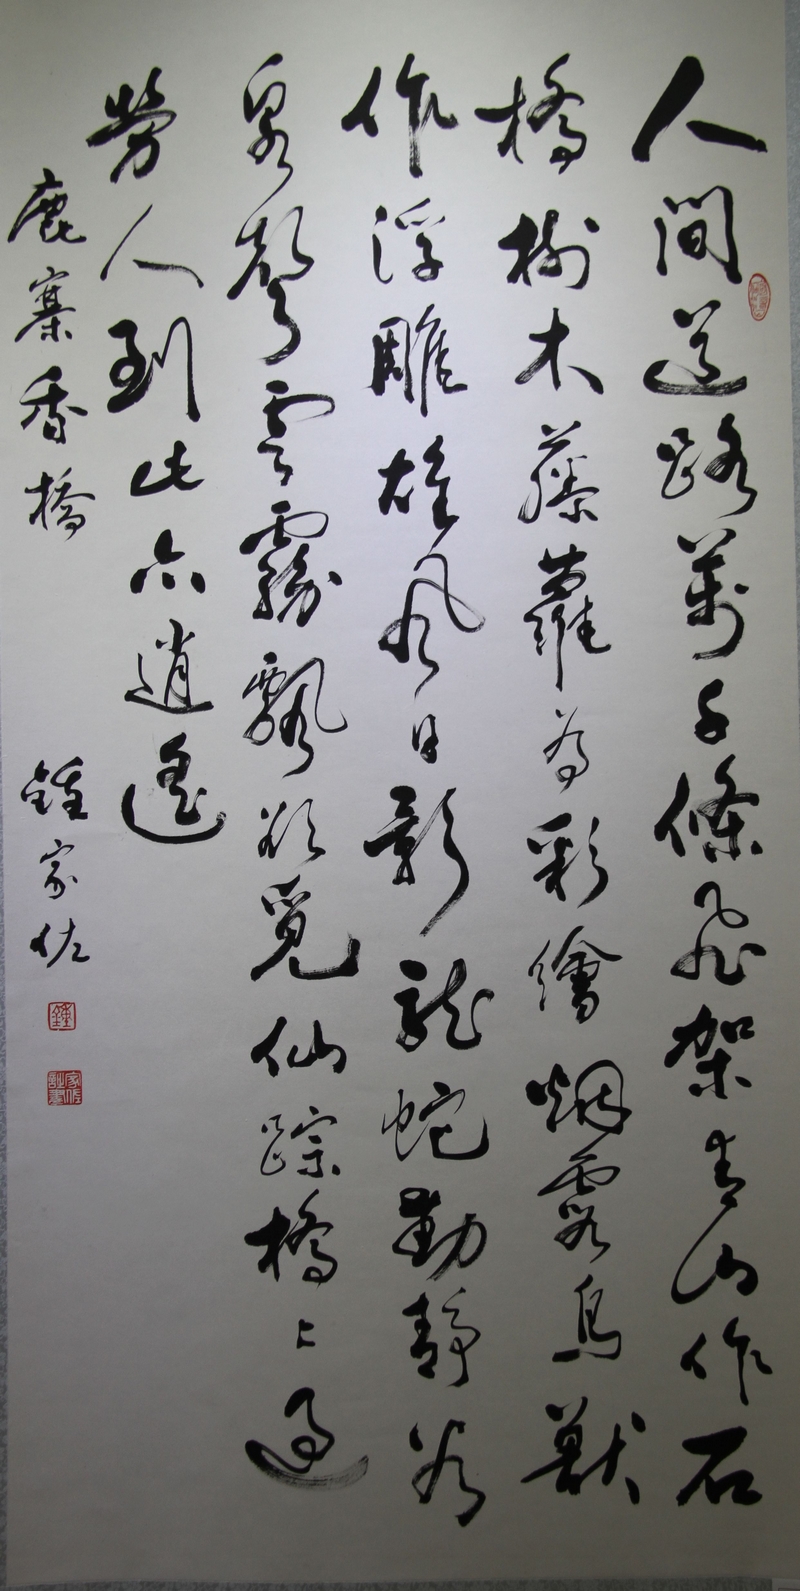 人間道路萬千條飛架青山作石
橋樹木藤蘿為彩繪烟霞鳥獸
作浮雕雄風日影龍蛇動靜谷
泉聲雲霧飄欲覓仙踪橋上過
勞人到此亦逍遙
鹿寨香橋
鍾家佐
鍾